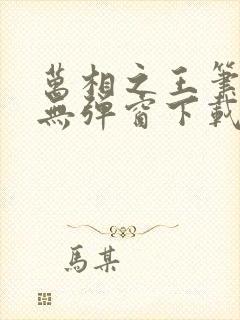 萬相之王筆
無彈窗下載
馬某